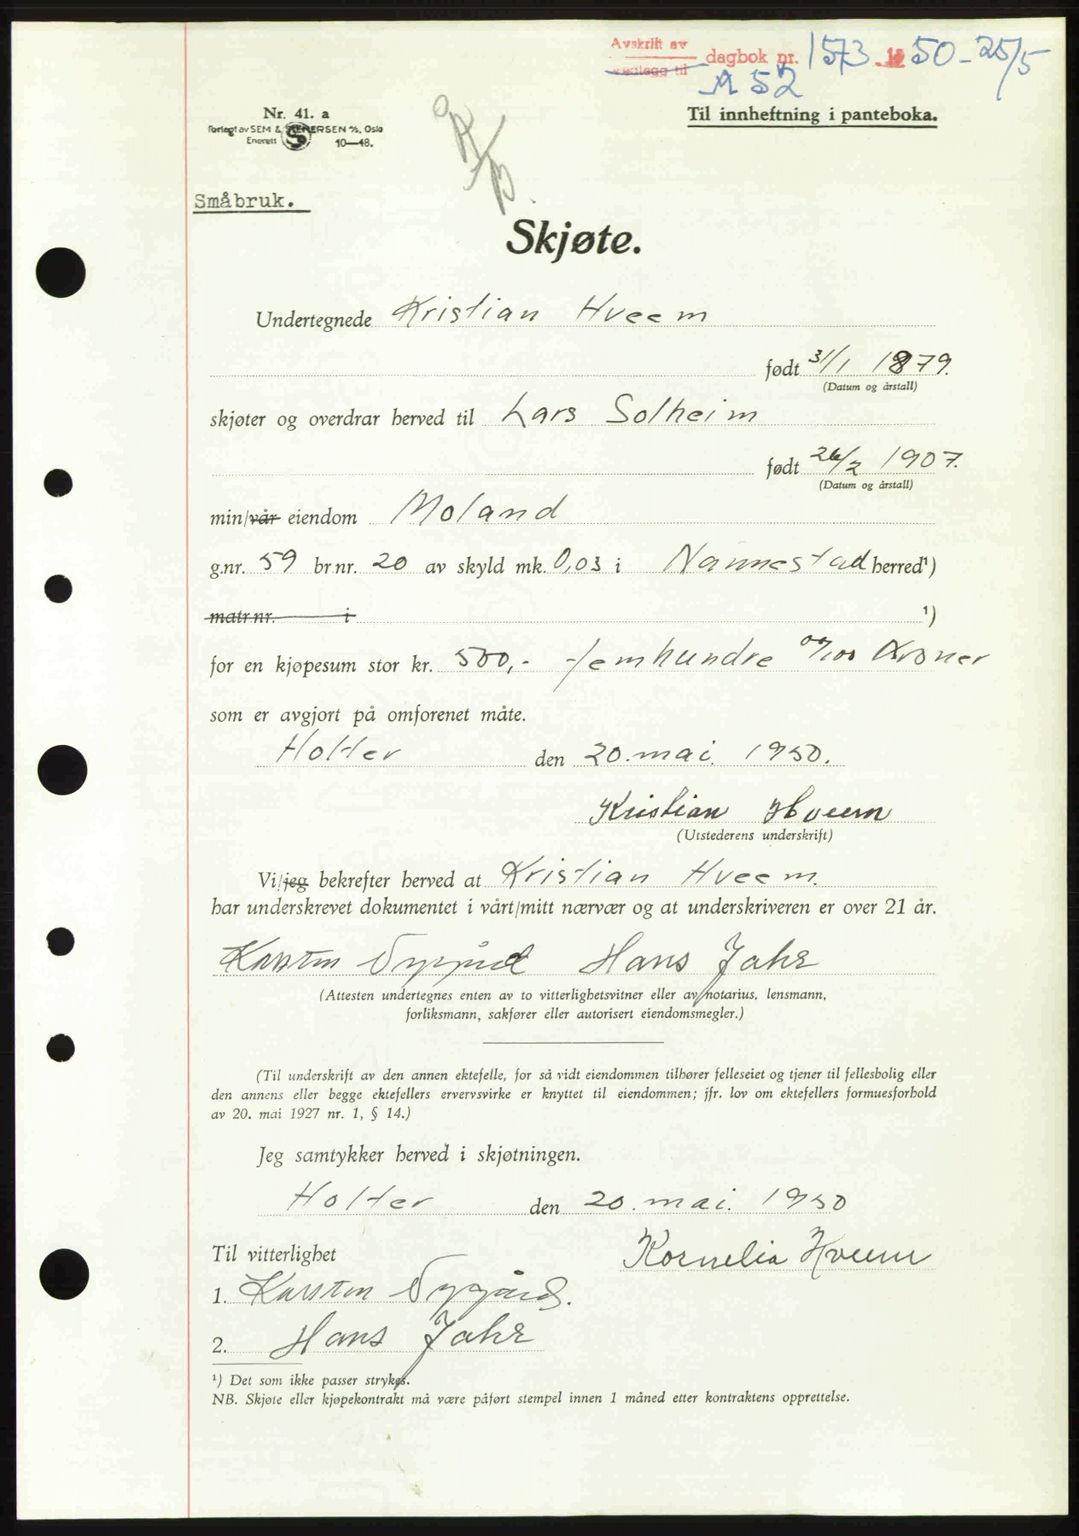 Avskrift av
vedlegg til dagbok nr. 1573 - 1950 - 25/5
A 52
Nr. 41. a
Forlagt av SEM & STENERSEN A/S, Oslo
Enerett 10—48.
Til innheftning i panteboka.
Småbruk.
Skjøte.
Undertegnede Kristian Hveem
født 31/1 1879.
(Datum og årstall)
skjøter og overdrar herved til Lars Solheim
født 26/2 1907.
(Datum og årstall)
min/vår eiendom Moland
g.nr. 59 br.nr. 20 av skyld mk. 0,03 i Nannestad herred¹)
matr.nr. i ¹)
for en kjøpesum stor kr. 500,- -femhundre 00/100 Kroner
som er avgjort på omforenet måte.
Holter den 20. mai. 1950.
Kristian Hveem
(Utstederens underskrift)
Vi/jeg bekrefter herved at Kristian Hveem.
har underskrevet dokumentet i vårt/mitt nærvær og at underskriveren er over 21 år.
Karsten Nygård Hans Jahr
(Attesten undertegnes enten av to vitterlighetsvitner eller av notarius, lensmann,
forliksmann, sakfører eller autorisert eiendomsmegler.)
(Til underskrift av den annen ektefelle, for så vidt eiendommen tilhører felleseiet og tjener til fellesbolig eller
den annens eller begge ektefellers ervervsvirke er knyttet til eiendommen; jfr. lov om ektefellers formuesforhold
av 20. mai 1927 nr. 1, § 14.)
Jeg samtykker herved i skjøtningen.
Holter den 20. mai. 1950
Til vitterlighet Kornelia Hveem
1. Karsten Nygård.
2. Hans Jahr
¹) Det som ikke passer strykes.
NB. Skjøte eller kjøpekontrakt må være påført stempel innen 1 måned etter kontraktens opprettelse.